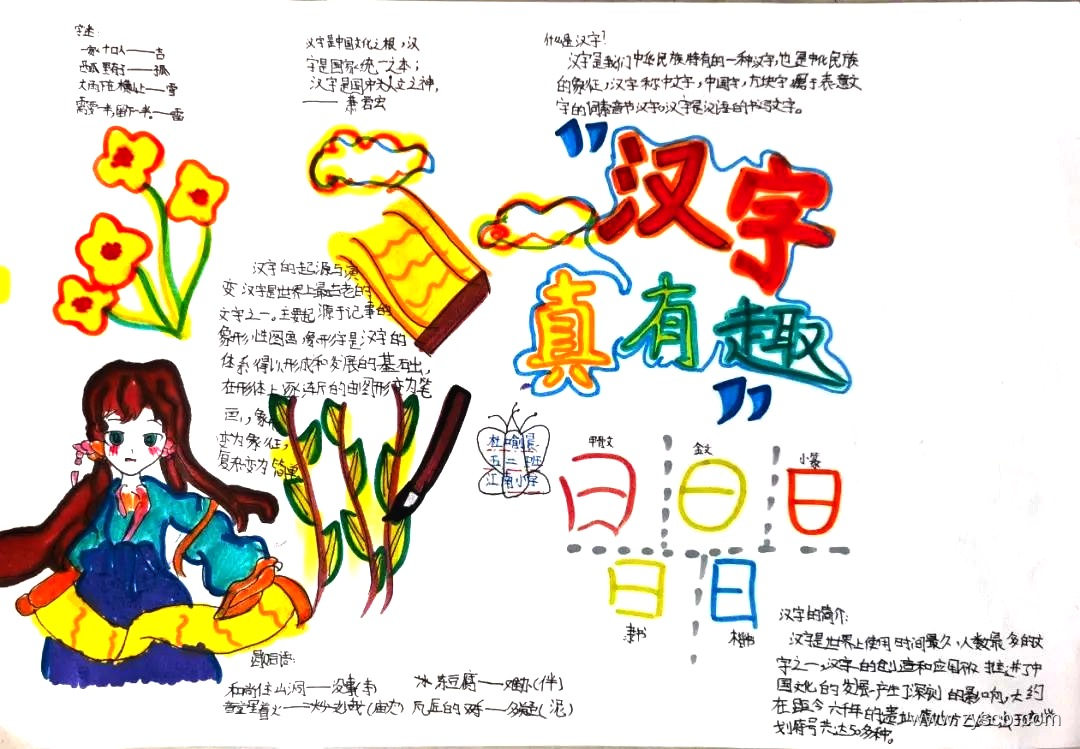 字迷:
一家十口人——吉
西瓜野子——孤
大雨下在横山上——雪
需要一半,留下一半。——雷
汉字是中国文化之根,汉
字是国家统一之本;
汉字是国人立之神,
—— 萧君虫
什么是汉字?
汉字是我们中华民族特有的一种汉字,也是中华民族
的象征,汉字称中文字,中国字,方块字属于表意文
字的词素音节汉字。汉字是汉语的书写文字。
"汉字
真有趣"
汉字的起源与演
变 汉字是世界上最古老的
文字之一。主要起源于记事的
象形性图画 象形字是汉字的
体系得以形成和发展的基石出,
在形体上逐渐的由图形变为笔
画,象
变为象征,
复杂变为简単
杜喻
五二班
江南小学
甲骨文
金文
小篆
日
日
日
日
日
隶书
楷书
汉字的简介:
汉字是世界上使用时间最久,人数最多的文
字之一,汉字的创造和应用不 推进了中
国文化的发展 产生了深刻的影响,大约
在距今六千年的遗址
划符号共达50多种。
歇后语:
和尚住山洞——没事(寺)
冰冻豆腐——难拌(伴)
瓦匠的 ——多疑(泥)